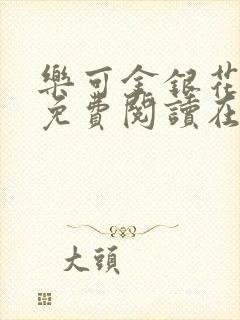 樂可金銀花
免費閱讀在
大頭